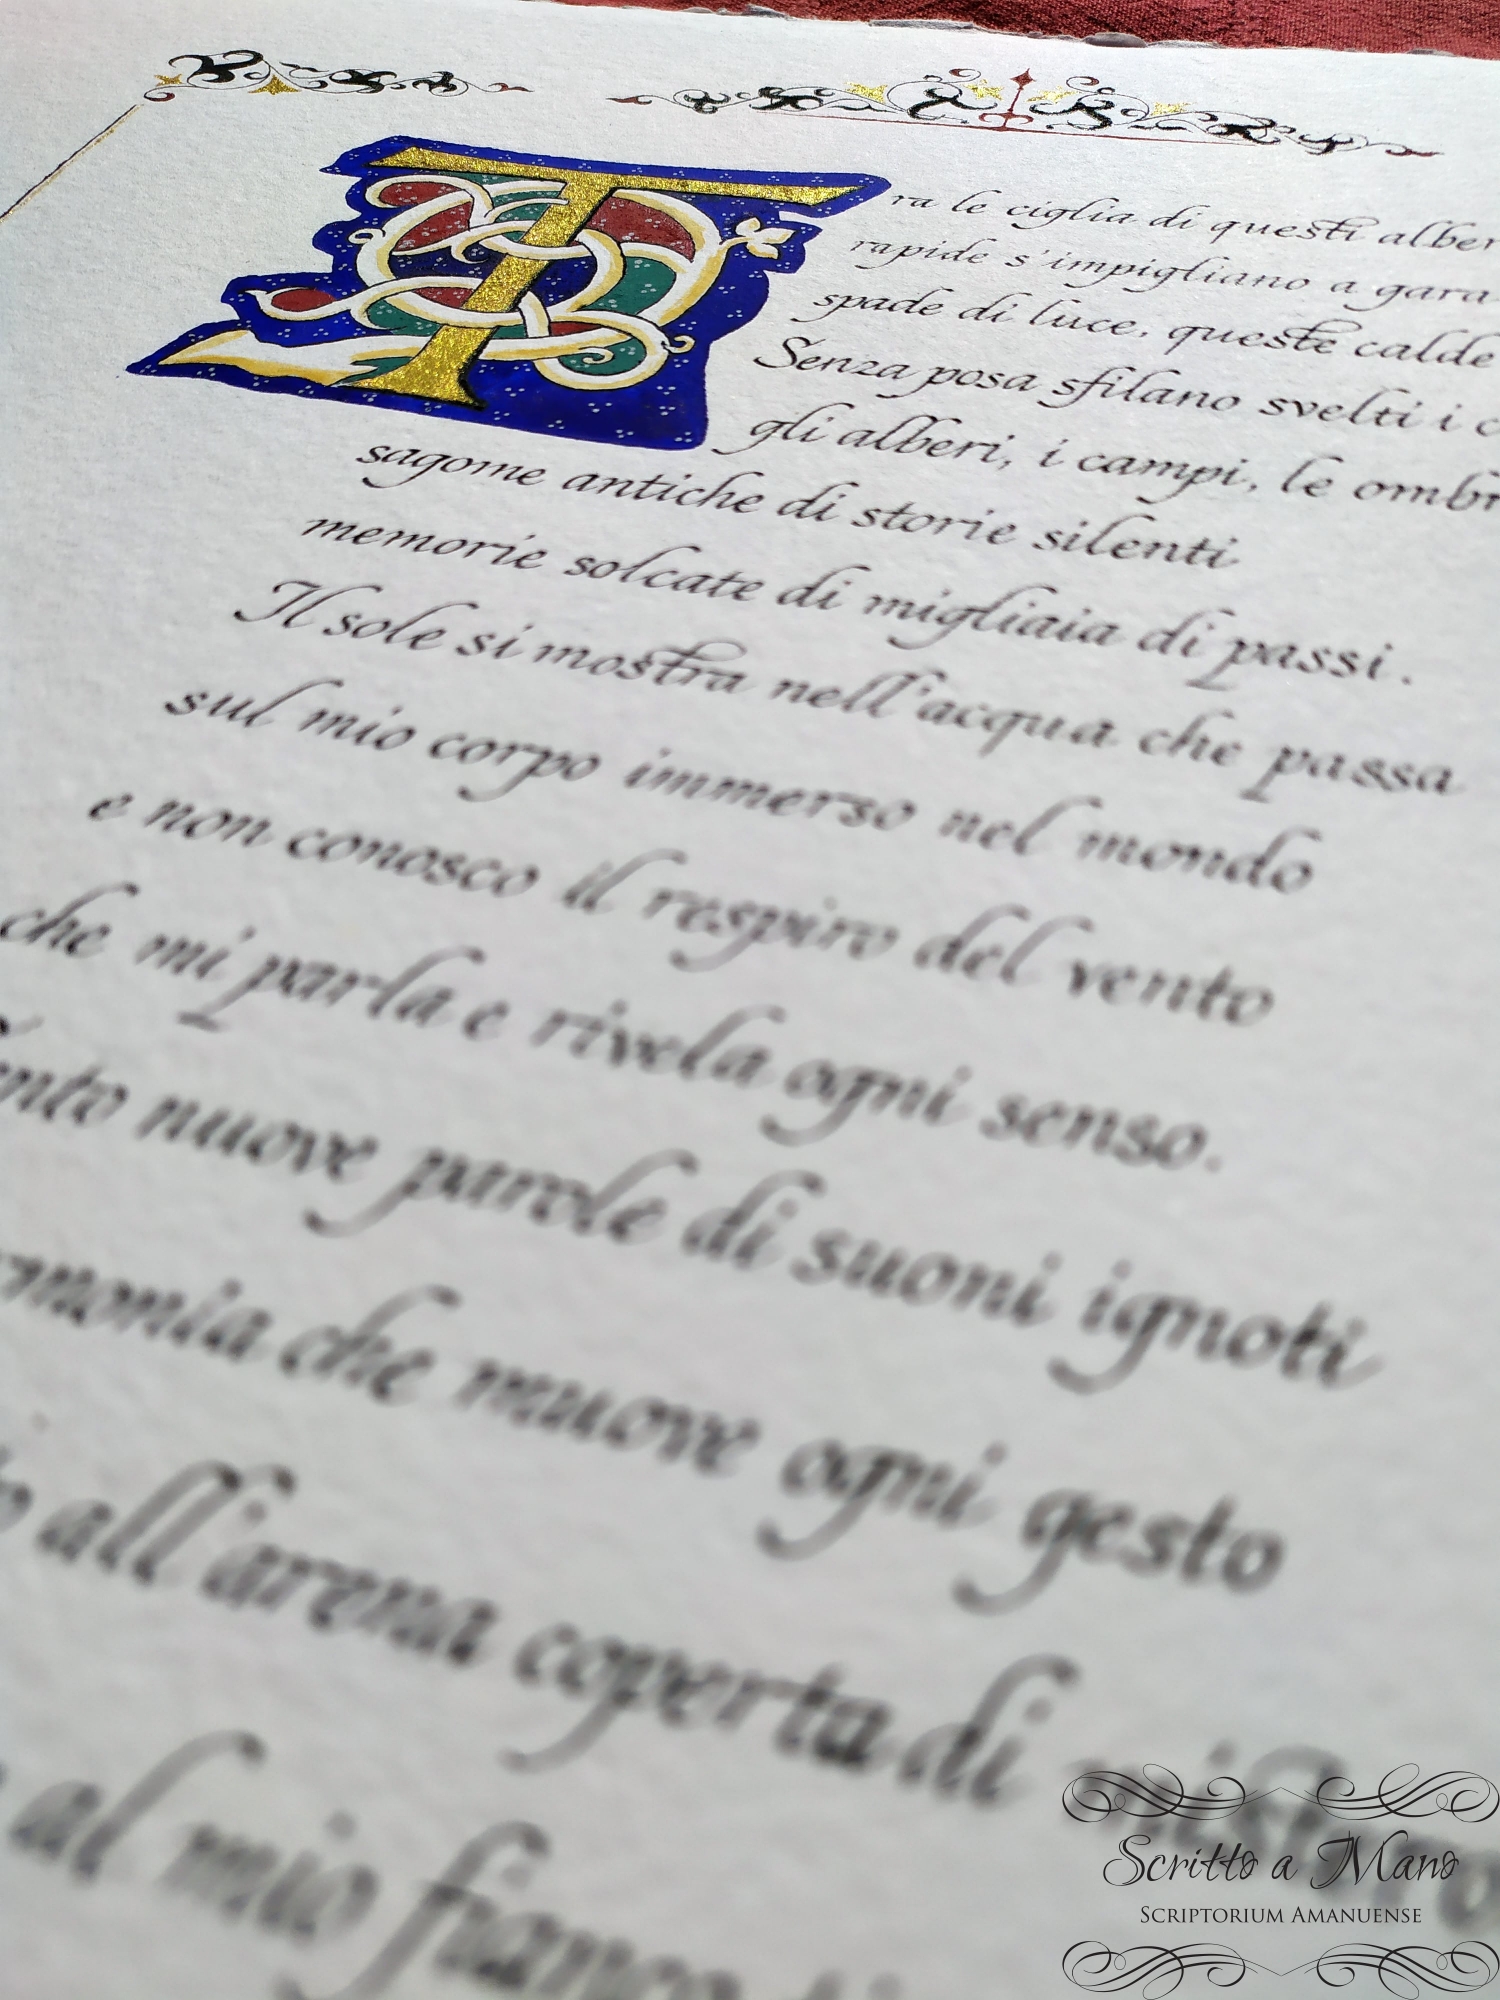 Tra le ciglia di questi
rapide s'impigliano a gara
spade di luce, queste calde
Senza posa sfilano svelti i
gli alberi, i campi, le
sagome antiche di storie silenti
memorie solcate di migliaia di passi.
Il sole si mostra nell'acqua che passa
sul mio corpo immerso nel mondo
e non conosco il respiro del vento
che mi parla e rivela ogni senso.
nuove parole di suoni ignoti
che muove ogni gesto
all'arena coperta di
al mio
Scritto a Mano
SCRIPTORIUM AMANUENSE